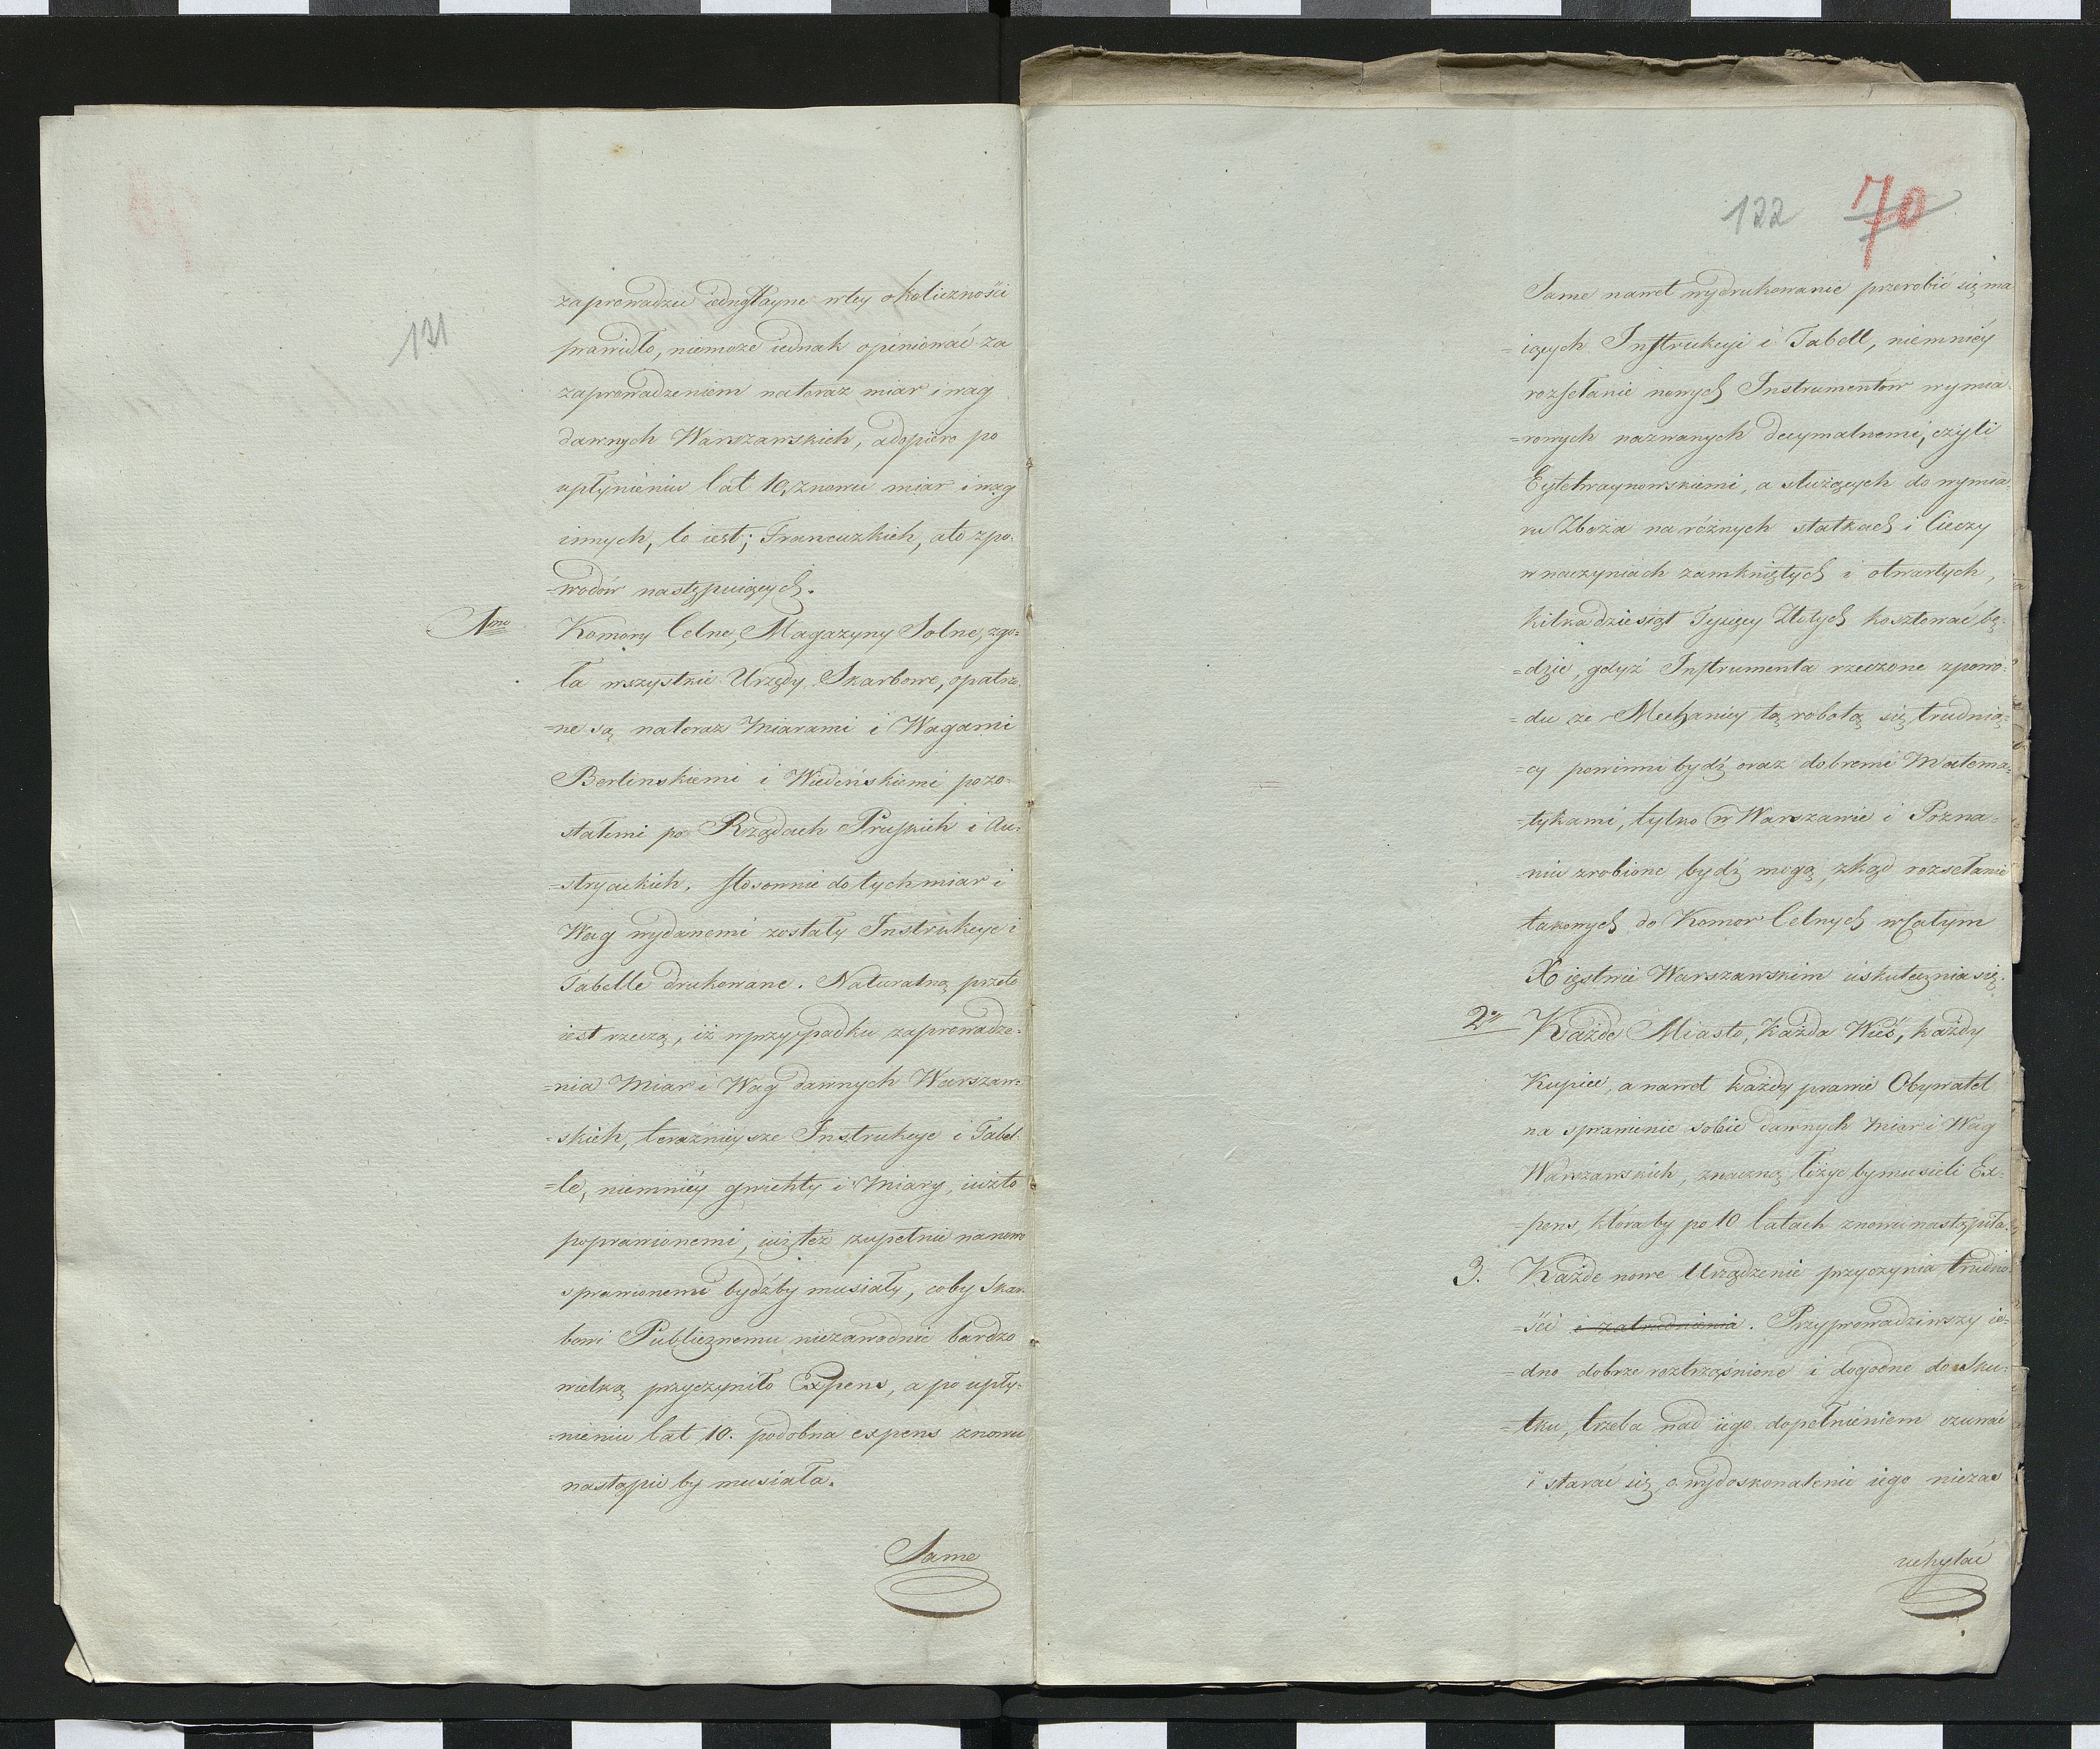 121
zaprowadzić iednostayne wtey okoliczności
prawidło, niemoże iednak opiniować za
zaprowadzeniem nateraz miar i wag
dawnych Warszawskich, adopiero po
upłynieniu lat 10, znowu miar i wag
innych, to iest; Francuzkich, ato zpo-
-wodów następuiących.
1mo Komory Celne, Magazyny Solne, zgo-
ła wszystkie Urzędy Skarbowe, opatrzo-
=ne są nateraz Miarami i Wagami
Berlinskiemi i Wiedeńskiemi pozo-
stałemi po Rządach Pruskich i Au-
=stryackich, stosownie do tych miar i
Wag wydanemi zostały Instrukcye i
Tabelle drukowane. Naturalną przeto
iest rzeczą, iż wprzypadku zaprowadze-
=nia Miar i Wag dawnych Warszaw-
=skich, teraźnieysze Instrukcye i Tabel-
=le, niemniey gwichty i Miary, iużto
poprawionemi, iuż też zupełnie nanowo
sprawionemi bydźby musiały, coby Skar-
bowi Publicznemu niezawodnie bardzo
wielką przyczyniło Expens, a po upły-
=nieniu lat 10. podobna expens znowu
nastąpić by musiała.
Same
122 70
Same nawet wydrukowanie przerobić się ma
=iących Instrukcyi i Tabell, niemniey
rozsełanie nowych Instrumentów wymia-
=rowych nazwanych decymalnemi, czyli
Eytelwaynowskiemi, a służących do wymia-
ru Zboża na różnych statkach i Cieczy
w naczyniach zamkniętych i otwartych,
kilkadziesiąt Tysięcy Złotych kosztować bę-
=dzie, gdyż Instrumenta rzeczone zpowo-
=du że Mechanicy tą robotą się trudnią-
=cy powinni bydź oraz dobremi Matema-
=tykami, tylko w Warszawie i Pozna-
=niu zrobione bydź mogą, zkąd rozsełanie
takowych do Komor Celnych w Całym
Xięstwie Warszawskim uskutecznia się.
2o Każde Miasto, Każda Wieś, każdy
Kupiec, a nawet każdy prawie Obywatel
na sprawienie sobie dawnych Miar i Wag
Warszawskich, znaczną łożyć bymusieli Ex-
=pens, któraby po 10 latach znowu nastąpiła.
3. Każde nowe Urządzenie przyczynia trudno-
=ści i zatrudnienia. Przyprowadziwszy ie-
=dno dobrze roztrząśnione i dogodne do Sku-
=tku, trzeba nad iego dopełnieniem czuwać
i starać się o wydoskonalenie iego nieza-
uchylać